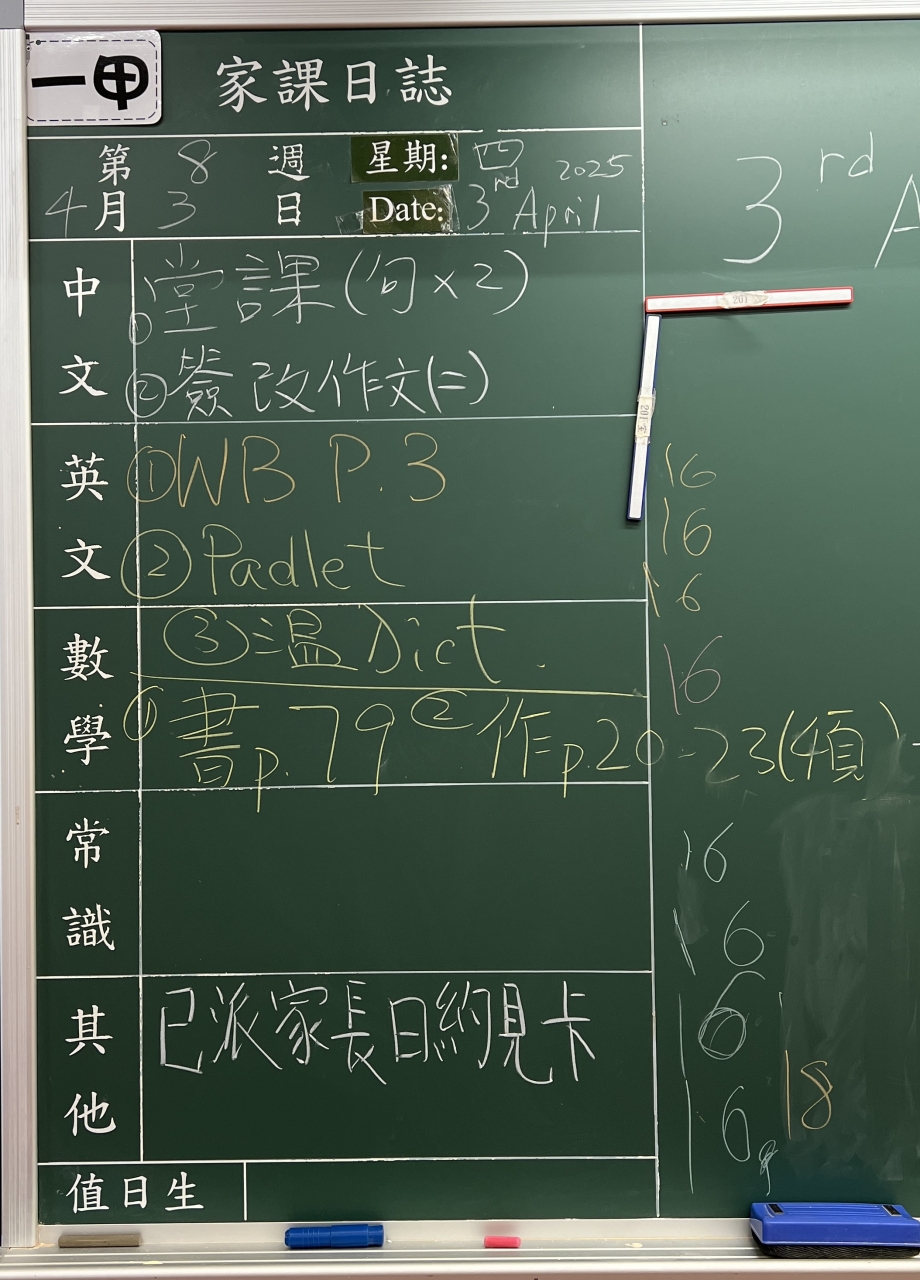 一甲
家課日誌
第 8 週 星期: 四
4月 3 日 Date: 3rd April 2025
3rd A
中文
①堂課(句×2)
②簽改作文(二)
英文
①WB P.3
②Padlet
③溫Dict.
數學
①書p.79 ②作p.20-23(4項)
常識
其他
已派家長日約見卡
值日生
201
201
16
16
16
16
16
16
16
16
18